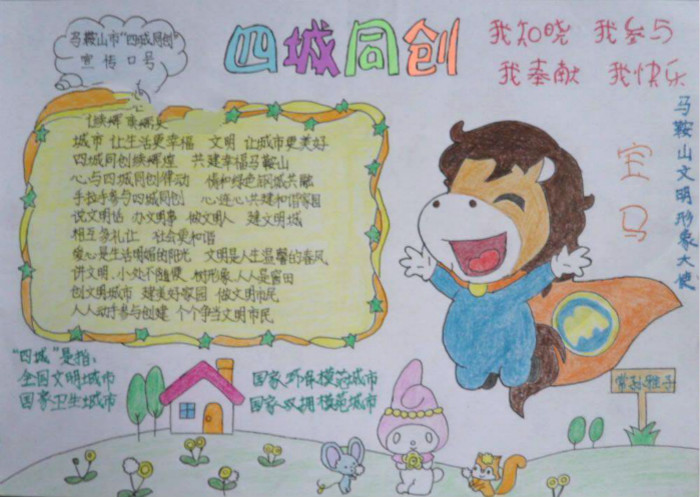 马鞍山市“四城同创”
宣传口号
四城同创
我知晓 我参与
我奉献 我快乐
城市 让生活更幸福 文明 让城市更美好
四城同创续辉煌 共建幸福马鞍山
心与四城同创律动 情和绿色钢城共融
手拉手参与四城同创 心连心共建和谐家园
说文明话 办文明事 做文明人 建文明城
相互多礼让 社会更和谐
爱心是生活明媚的阳光 文明是人生温馨的春风
讲文明,小处不随便 树形象,人人是窗口
创文明城市 建美好家园 做文明市民
人人动手参与创建 个个争当文明市民
马鞍山文明形象大使
宝马
“四城”是指：
全国文明城市
国家卫生城市
国家环保模范城市
国家双拥模范城市